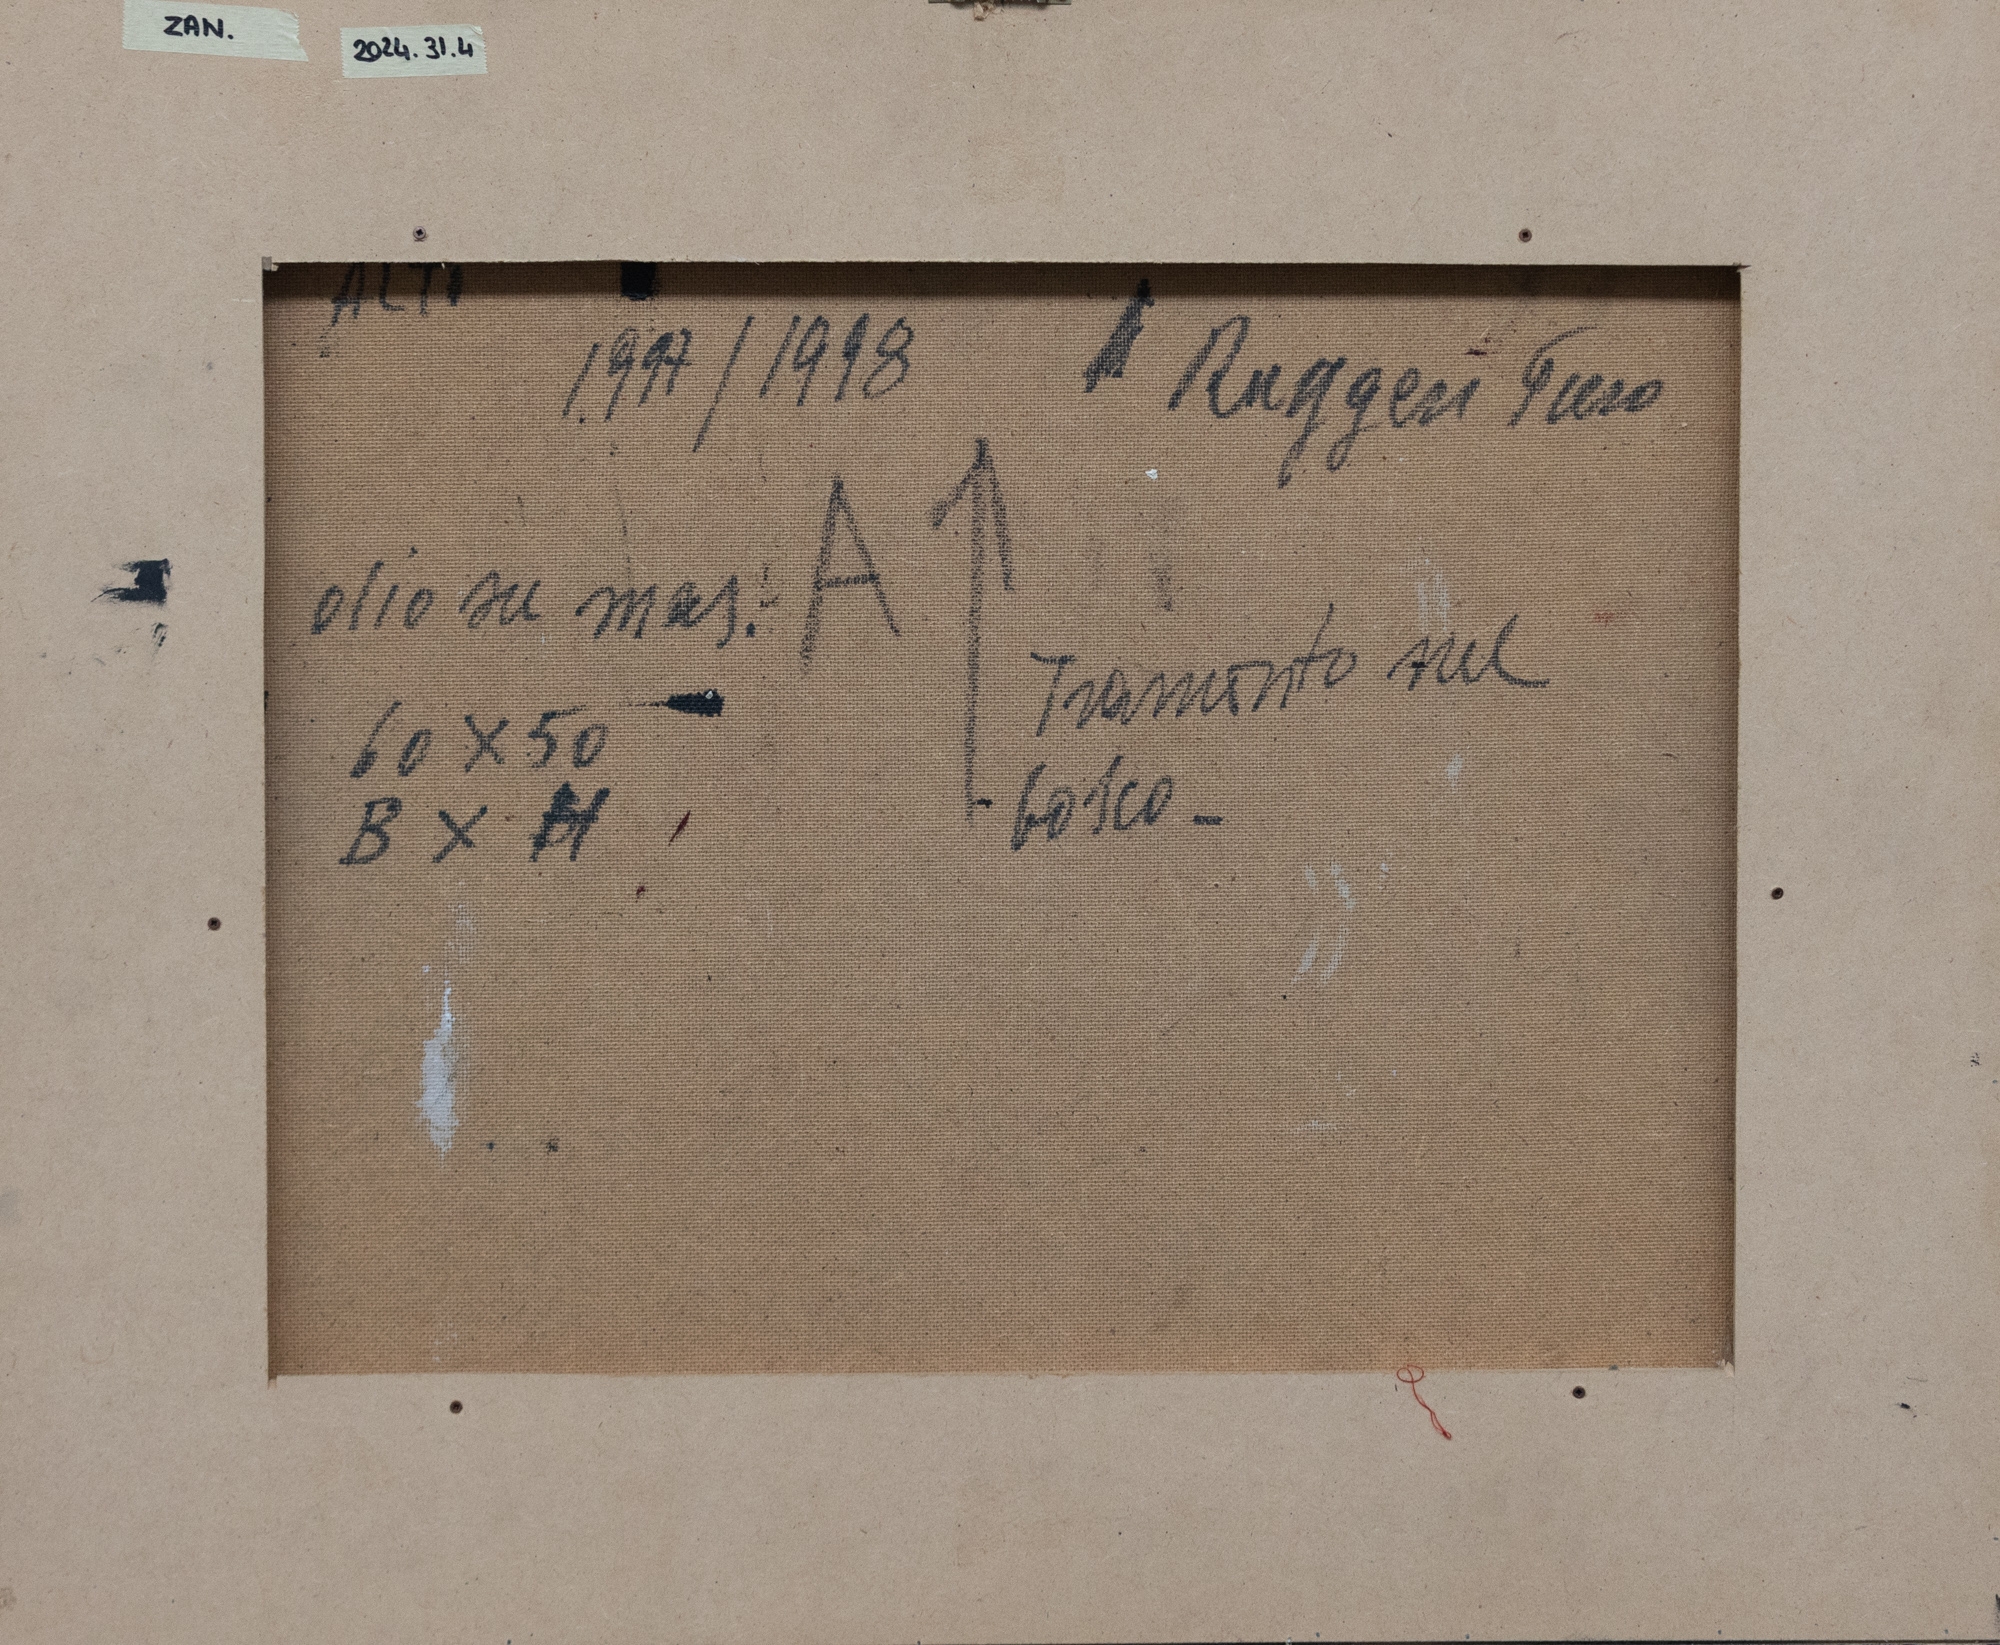 ZAN.
2024.31.4
ALT
1997/1998
Ruggeri Piero
A
olio su mas.
Tramonto sul
bosco_
60 x 50
B x H